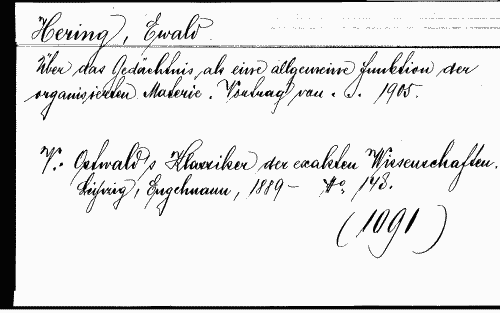 Hering, Ewald
Über das Gedächtnis als eine allgemeine Funktion der
organisierten Materie. Vortrag von . . . 1905.
V.: Ostwald's Klassiker der exakten Wissenschaften.
Leipzig, Engelmann, 1889 – No. 148.
(1091)